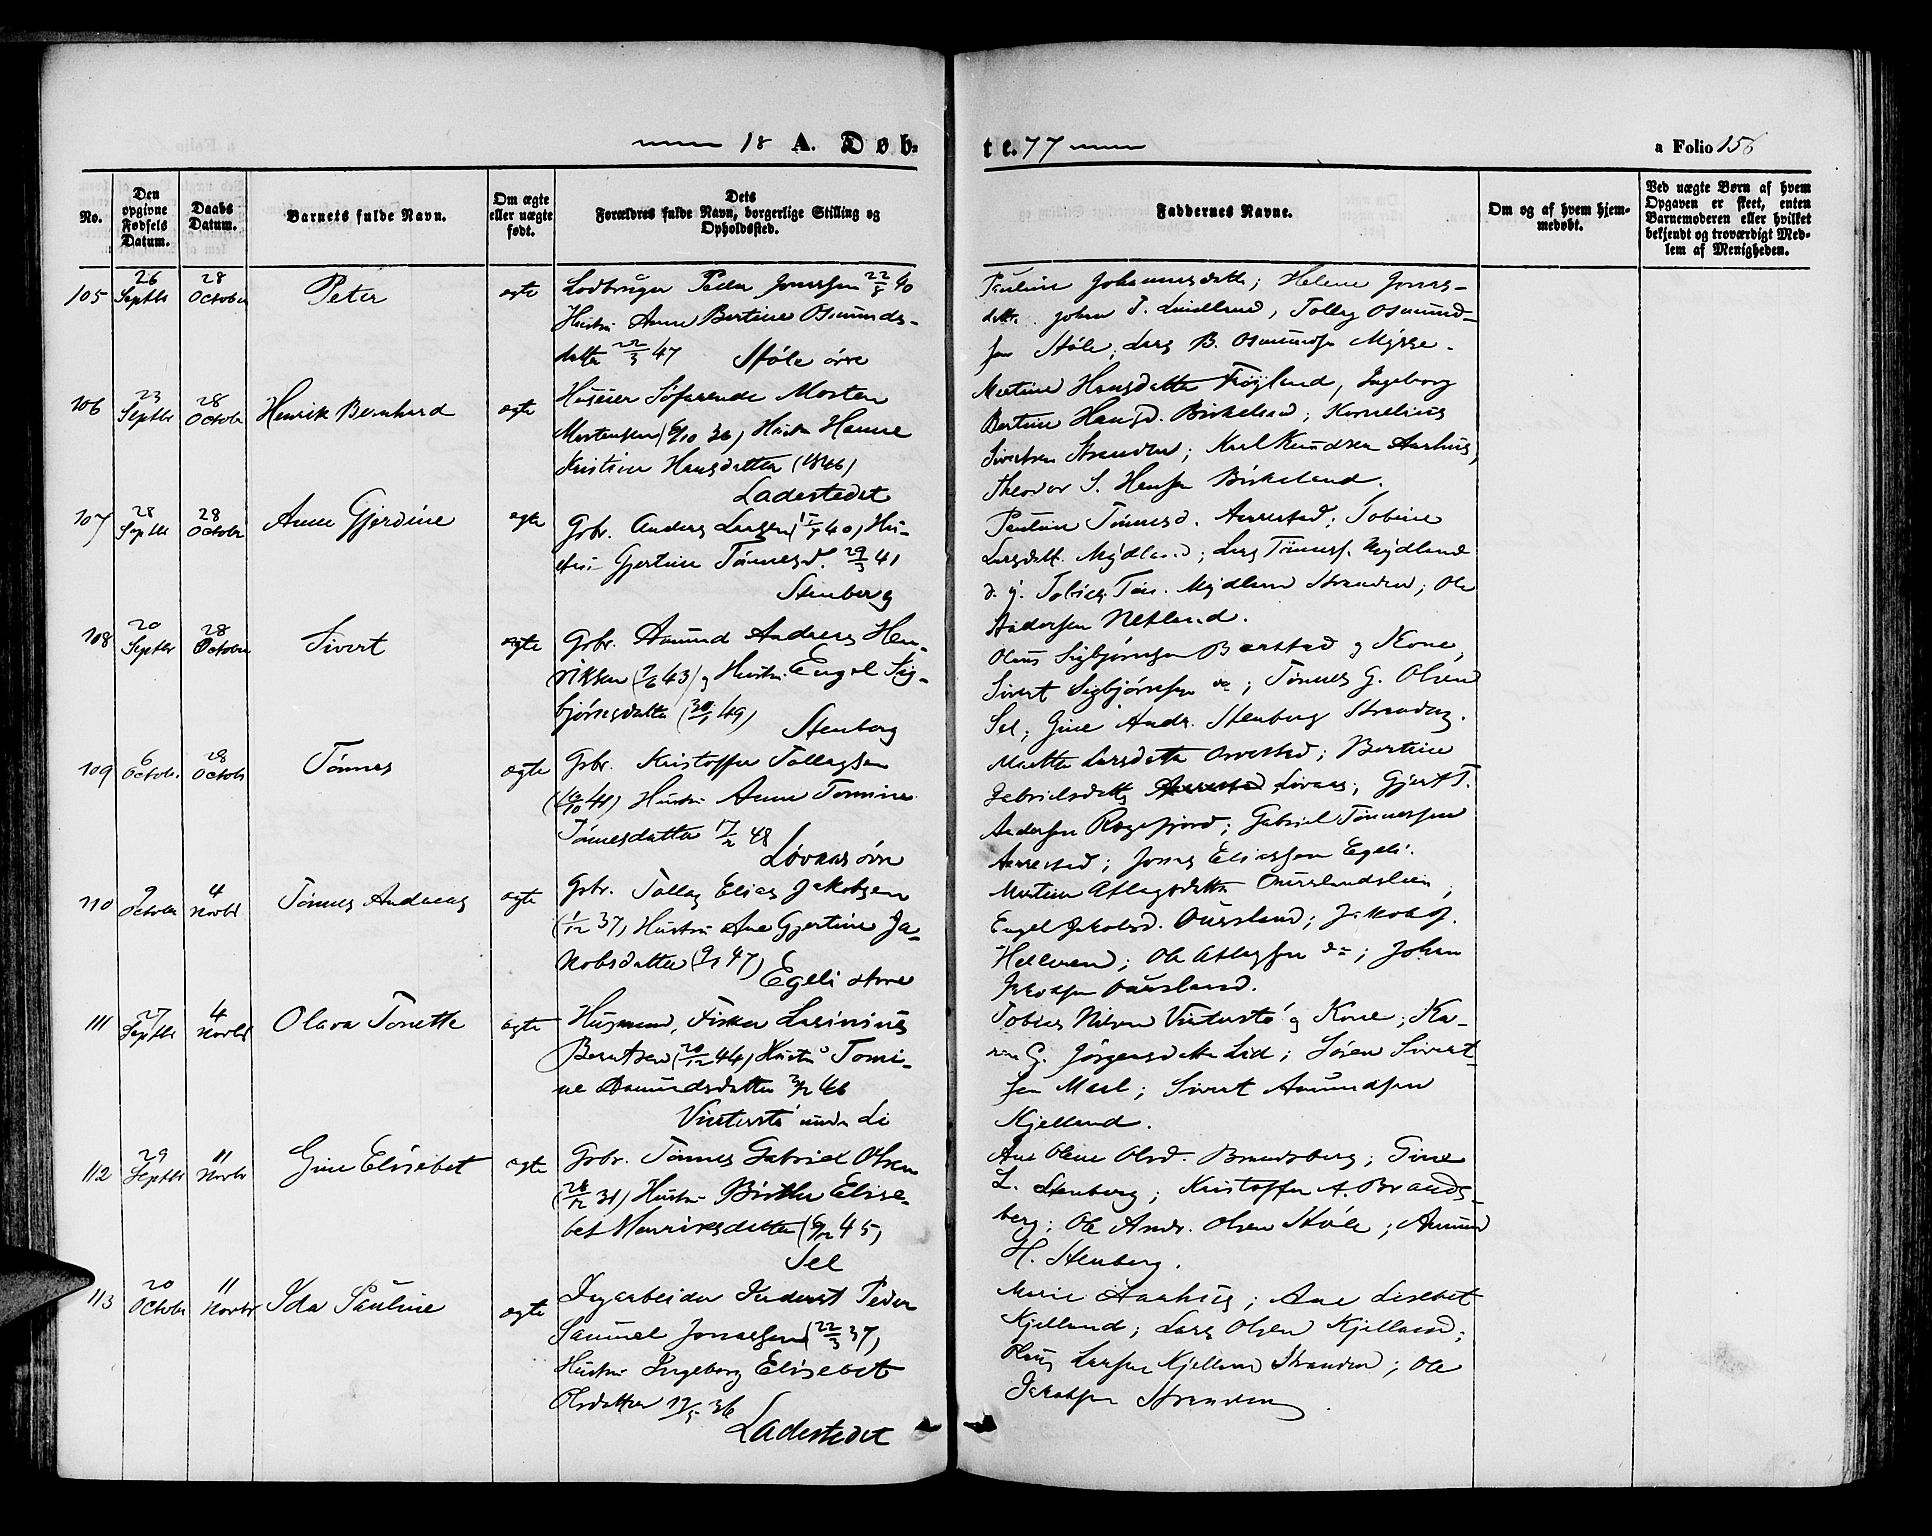 18 A. Døb-
te. 77
a Folio 156
No.
Den opgivne Fødsels Datum.
Daabs Datum.
Barnets fulde Navn.
Om ægte eller uægte født.
Dets Forældres fulde Navn, borgerlige Stilling og Opholdssted.
Faddernes Navne.
Om og af hvem hjemmedøbt.
Ved uægte Børn af hvem Opgaven er skeet, enten Barnemoderen eller hvilket bekjendt og troværdigt Medlem af Menigheden.
105
26 Septbr
28 October
Peter
ægte
Peder Jonassen 22/8 40
Hustru Anne Bertine Osmunds-
datter 22/3 47 Støle øvre
Pauline Johannesdatter; Helene Jonas-
datter. Johan T. Lindland, Tollag Osmund-
sen Støle; Lars B. Osmundsen Mysse.
106
23 Septbr
28 October
Henrik Bernhard
ægte
Huseier Søfarende Morten
Mortensen (6/10 36) Hustru Hanne
Kristine Hansdatter (1846)
Ladestedet
Martine Hansdatter Frøyland, Ingeborg
Bertine Hansd. Birkeland; Kornelius
Sivertsen Stranden; Karl Knudsen Aarhus,
Theodor S. Hansen Birkeland.
107
28 Septbr
28 October
Anne Gjerdine
ægte
Gbr. Anders Larsen 40) Hu-
stru Gjertine Tønnesd. 29/3 41
Stenberg
Pauline Tønnesd. Aarrestad; Tobine
Larsdatt. Mydland; Lars Tønness. Mydland
d. y. Tobias Tøn. Mydland Stranden; Ole
Andersen Netland.
108
20 Septbr
28 October
Sivert
ægte
Gbr. Amund Andreas Hen-
riksen (7/6 43) og Hustru Engel Sig-
bjørnsdatter (30/1 49)
Stenberg
Olaus Sigbjørnsen Barstad og Kone,
Sivert Sigbjørnsen do; Tønnes G. Olsen
Sel; Gine Andr. Stenberg Stranden.
109
6 Octobr
28 Octobr
Tønnes
ægte
Gbr. Kristoffer Tollagsen
Hustru Anne Tomine
Tønnesdatter 17/2 48
Løvaas øvre
Martha Larsdatter Orrestad; Bertine
Gabrielsdatter Løvaas; Gjert T.
Andersen Rægefjord; Gabriel Tønnessen
Aarrestad; Jonas Eliassen Egeli.
110
9 October
4 Novbr
Tønnes Andreas
ægte
Gbr. Tollag Elias Jakobsen
(1/12 37) Hustru Ane Gjertine Ja-
kobsdatter (9/1 47)
Egeli store
Martine Atlagsdatter
Engel Jakobsd. Oursland; Jakob O.
Helleren; Ole Atlagsen do; Johan
Jakobsen Oursland.
111
27 Septbr
4 Novbr
Olava Tonette
ægte
Husmand, Fisker Lasinius
Berntsen (20/12 44) Hustru Tomi-
ne Aamundsdatter 2/12 46
Vinterstø under Li
Tobias Nilsen Vinterstø og Kone; Ka-
ren G. Jørgensdatter Lid; Søren Sivert-
sen Mael; Sivert Aamundsen
Kjelland.
112
29 Septbr
11 Novbr
Gine Elisebet
ægte
Gbr. Tønnes Gabriel Olsen
(26/12 31) Hustru Birthe Elise-
bet Henriksdatter (6/12 45)
Sel
Ane Olene Olsd. Brandsberg; Gine
L. Stenberg; Kristoffer A. Brands-
berg; Ole Andr. Olsen Støle; Amund
H. Stenberg.
113
20 October
11 Novbr
Ida Pauline
ægte
Peder
Samuel Jonassen (22/3 37)
Hustru Ingeborg Elisebet
Olsdatter 12/5 36
Ladestedet
Marie Aarhus; Ane Lisebet
Kjelland; Lars Olsen Kjelland;
Olaus Larsen Kjelland Stranden; Ole
Jakobsen Stranden.